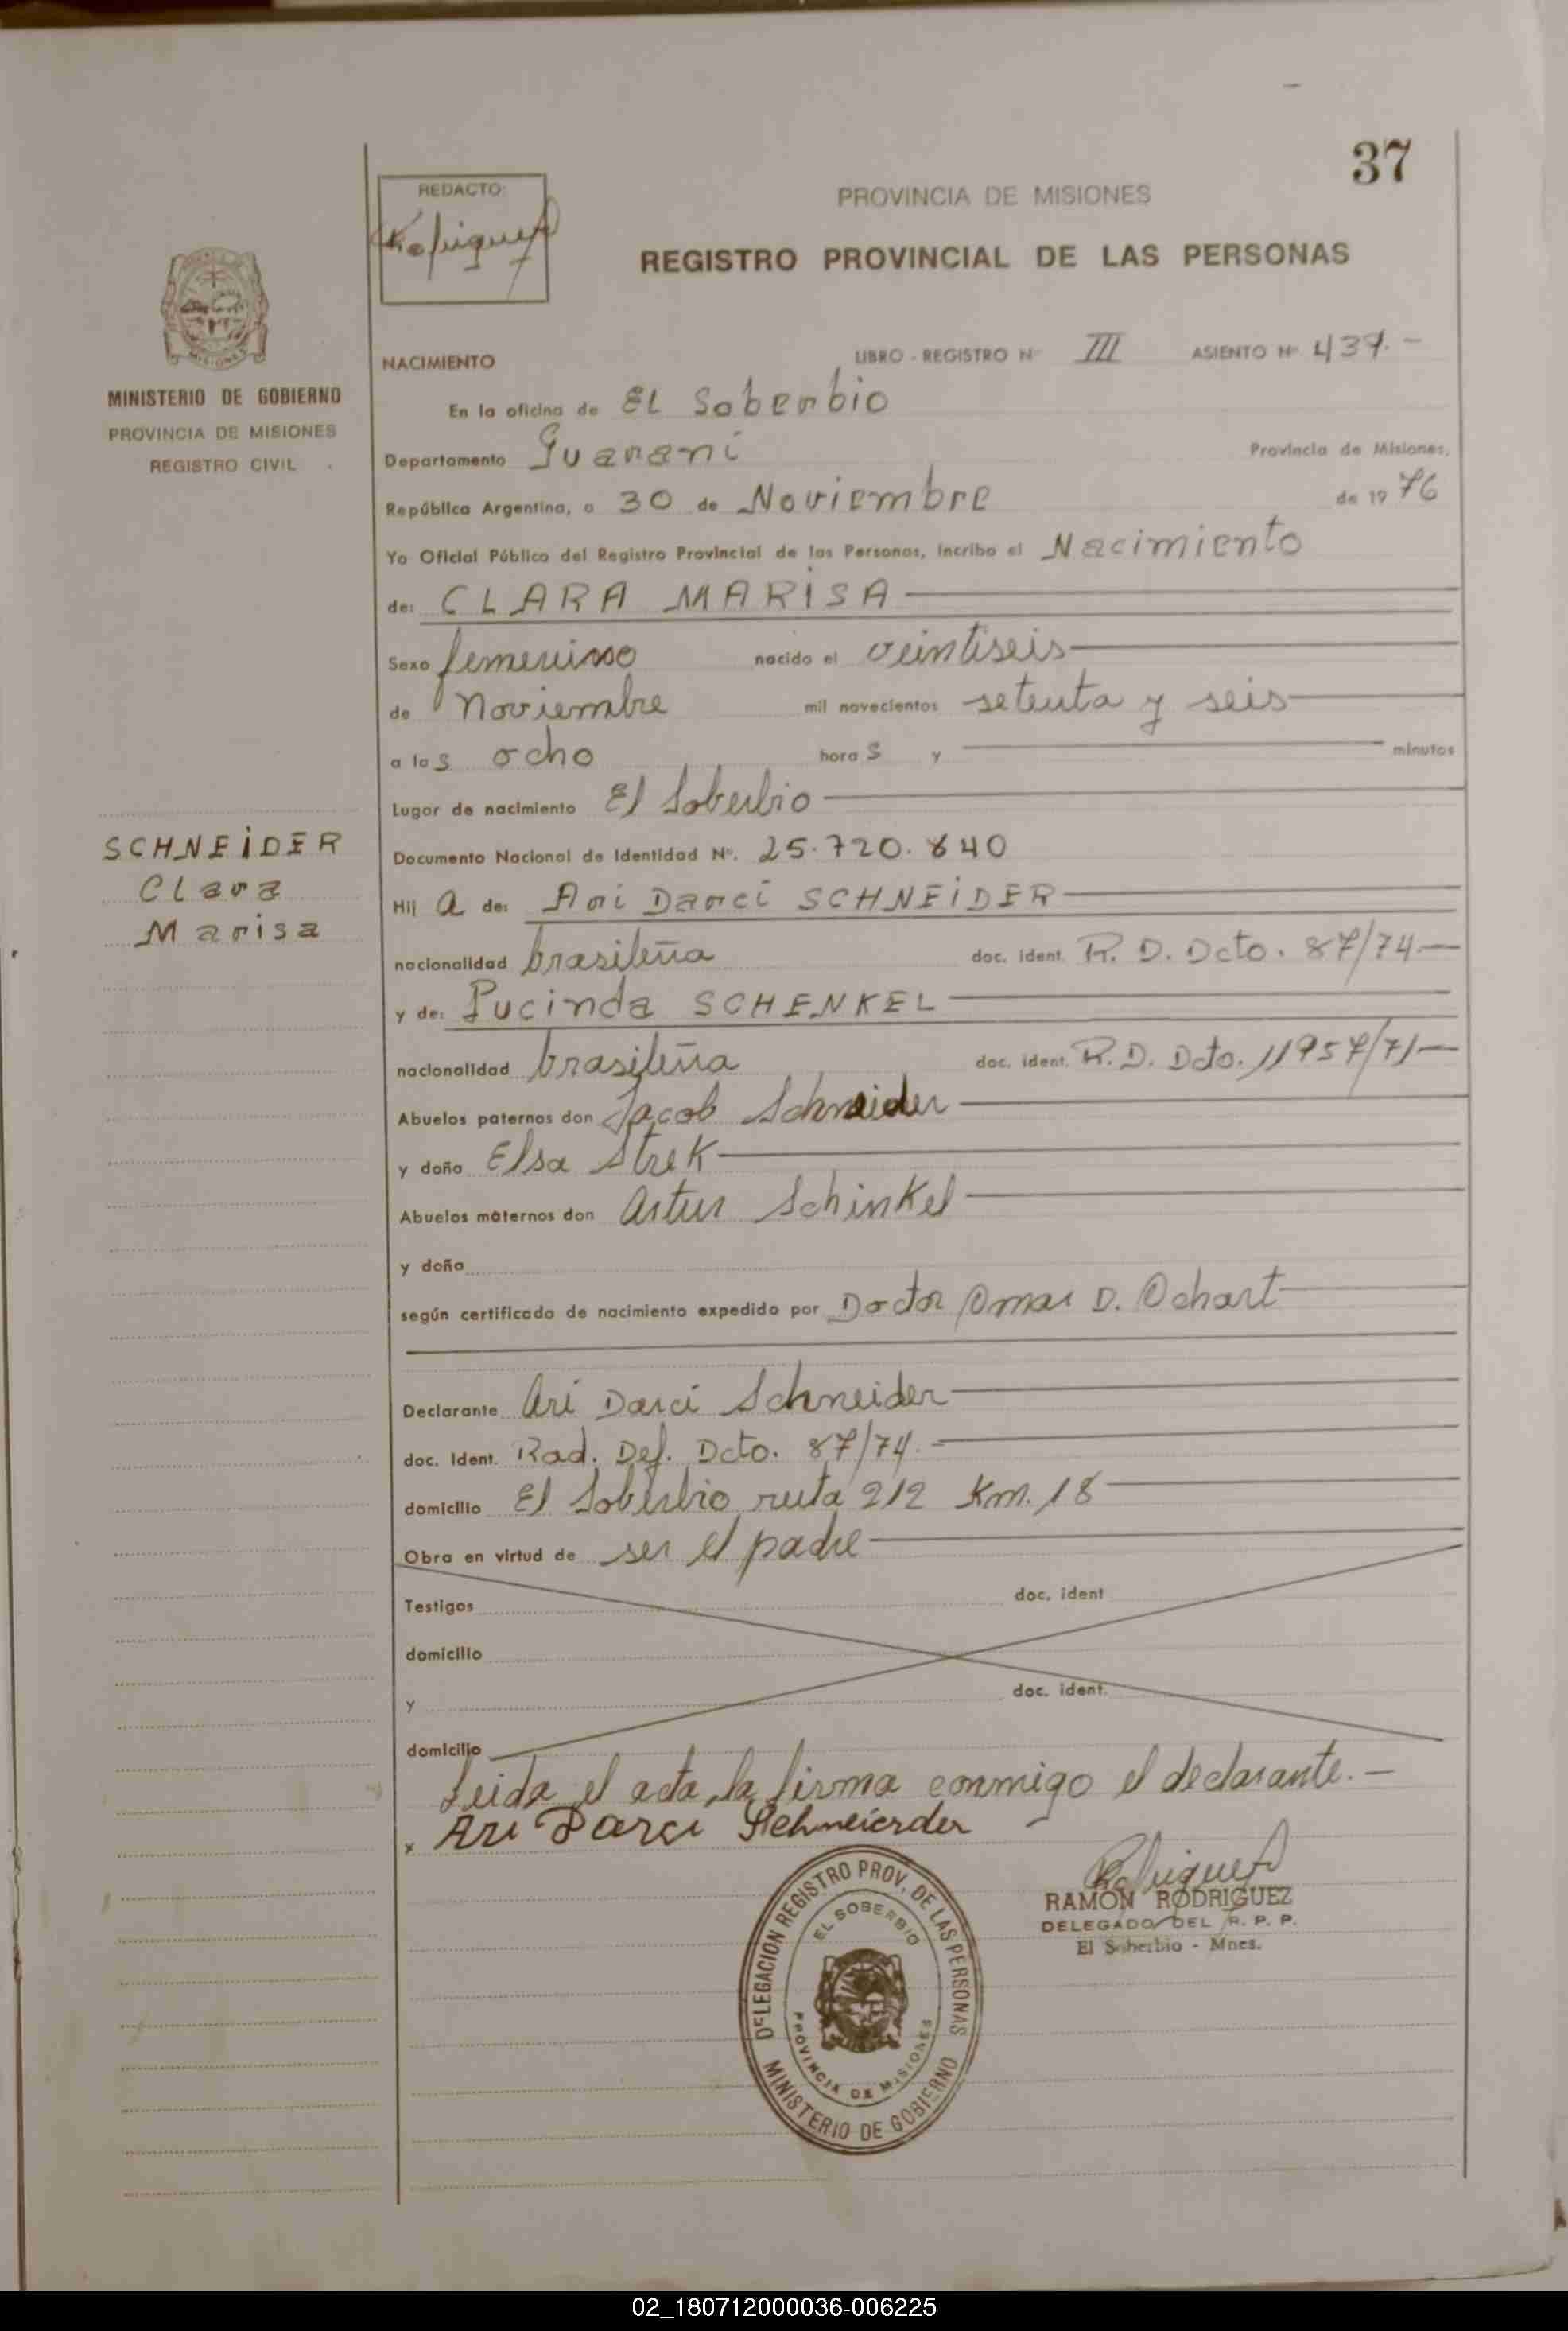 37
REDACTO:
PROVINCIA DE MISIONES
REGISTRO PROVINCIAL DE LAS PERSONAS
MISIONES
MINISTERIO DE GOBIERNO
PROVINCIA DE MISIONES
REGISTRO CIVIL
NACIMIENTO LIBRO - REGISTRO Nº III ASIENTO Nº 437.-
En la oficina de EL Soberbio
Departamento Guarani Provincia de Misiones,
República Argentina, a 30 de Noviembre de 1976
Yo Oficial Público del Registro Provincial de las Personas, incribo el Nacimiento
de: CLARA MARISA
Sexo femenino nacido el veintiseis
de Noviembre mil novecientos setenta y seis
a las ocho horas y minutos
Lugar de nacimiento El Soberbio
SCHNEIDER
Clara
Marisa
Documento Nacional de Identidad Nº. 25.720.640
Hija de: Ari Darci SCHNEIDER
nacionalidad brasileña doc. ident. R. D. Dcto. 87/74-
y de: Lucinda SCHENKEL
nacionalidad brasileña doc. ident. R. D. Dcto. 11957/71-
Abuelos paternos don Jacob Schneider
y doña Elsa Strek
Abuelos maternos don Artur Schinkel
y doña
según certificado de nacimiento expedido por Doctor Omar D. Ochart
Declarante Ari Darci Schneider
doc. Ident. Rad. Def. Dcto. 87/74.-
domicilio El Soberbio ruta 212 Km. 18
Obra en virtud de ser el padre
Testigos doc. ident
domicilio
y doc. ident.
domicilio
Leida el acta, la firma conmigo el declarante.-
x Ari Darci Schneierder
Rodriguez
RAMON RODRIGUEZ
DELEGADO DEL R. P. P.
El Soberbio - Mnes.
DELEGACION REGISTRO PROV. DE LAS PERSONAS
EL SOBERBIO
PROVINCIA DE MISIONES
MINISTERIO DE GOBIERNO
02_180712000036-006225